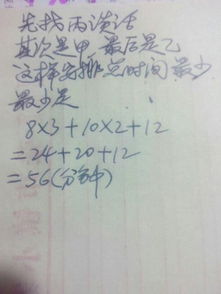 先找丙谈话
其次是甲 最后是乙
这样安排总时间最少
最少是
8×3+10×2+12
=24+20+12
=56(分钟)